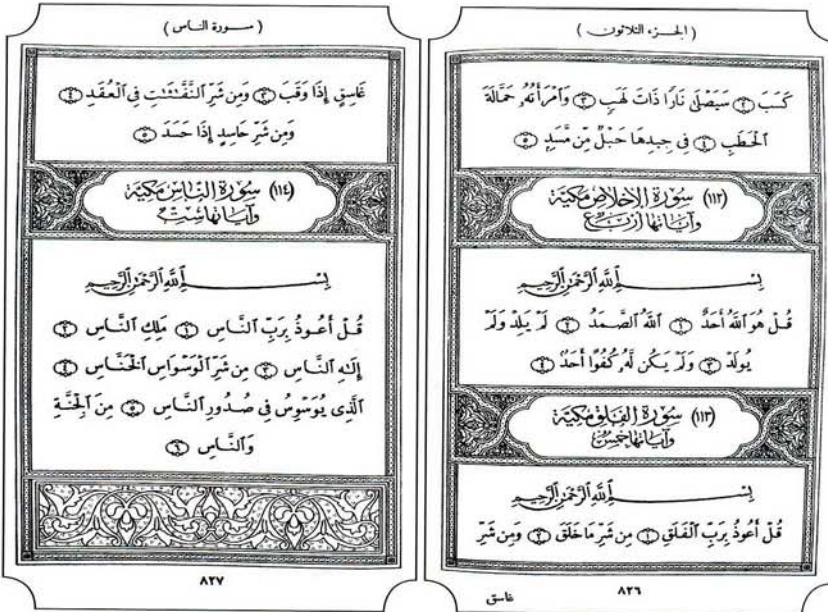 ( الجزء الثلاثون )
كَسَبَ ٢ سَيَصْلَىٰ نَارًا ذَاتَ لَهَبٍ ٣ وَٱمْرَأَتُهُۥ حَمَّالَةَ
ٱلْحَطَبِ ٤ فِى جِيدِهَا حَبْلٌ مِّن مَّسَدٍۭ ٥
(١١٢) سورة الإخلاص مكية
وآياتها أربع
بِسْمِ ٱللَّهِ ٱلرَّحْمَٰنِ ٱلرَّحِيمِ
قُلْ هُوَ ٱللَّهُ أَحَدٌ ١ ٱللَّهُ ٱلصَّمَدُ ٢ لَمْ يَلِدْ وَلَمْ
يُولَدْ ٣ وَلَمْ يَكُن لَّهُۥ كُفُوًا أَحَدٌۢ ٤
(١١٣) سورة الفلق مكية
وآياتها خمس
بِسْمِ ٱللَّهِ ٱلرَّحْمَٰنِ ٱلرَّحِيمِ
قُلْ أَعُوذُ بِرَبِّ ٱلْفَلَقِ ١ مِن شَرِّ مَا خَلَقَ ٢ وَمِن شَرِّ
٨٢٦
غاسق
( سورة الناس )
غَاسِقٍ إِذَا وَقَبَ ٣ وَمِن شَرِّ ٱلنَّفَّٰثَٰتِ فِى ٱلْعُقَدِ ٤
وَمِن شَرِّ حَاسِدٍ إِذَا حَسَدَ ٥
(١١٤) سورة الناس مكية
وآياتها ست
بِسْمِ ٱللَّهِ ٱلرَّحْمَٰنِ ٱلرَّحِيمِ
قُلْ أَعُوذُ بِرَبِّ ٱلنَّاسِ ١ مَلِكِ ٱلنَّاسِ ٢
إِلَٰهِ ٱلنَّاسِ ٣ مِن شَرِّ ٱلْوَسْوَاسِ ٱلْخَنَّاسِ ٤
ٱلَّذِى يُوَسْوِسُ فِى صُدُورِ ٱلنَّاسِ ٥ مِنَ ٱلْجِنَّةِ
وَٱلنَّاسِ ٦
٨٢٧